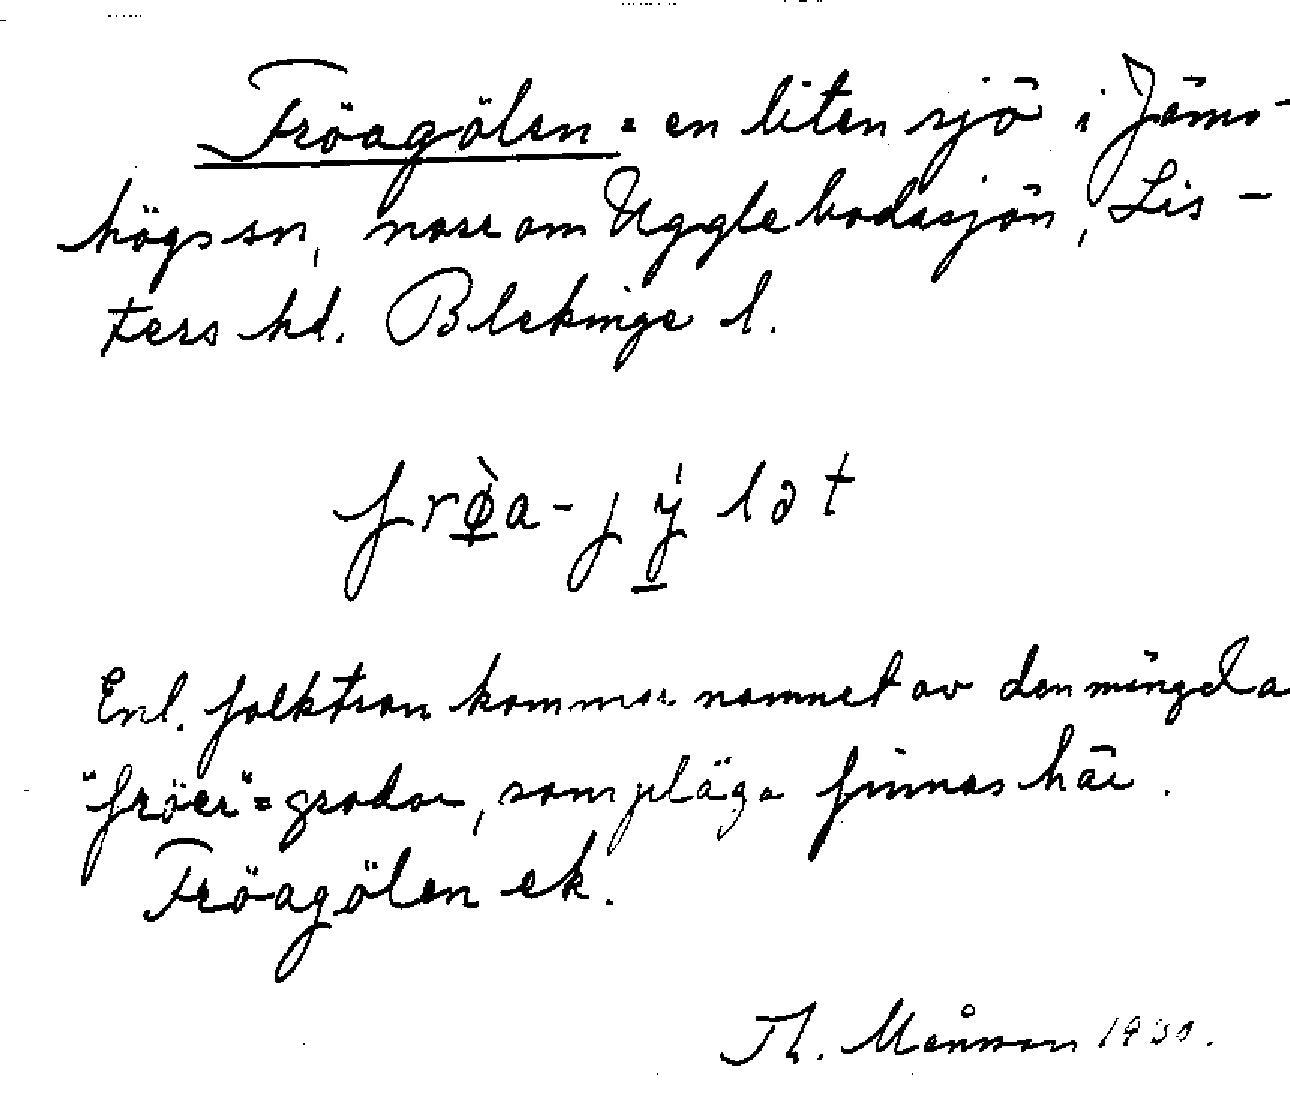 Fröagölen = en liten sjö i Jäms-
högs sn, norr om Ugglebodasjön, Lis-
ters hd. Blekinge l.
frø̀a-jýlət
Enl. folktron kommer namnet av den mängd a
"fröer" = grodor, som pläga finnas här.
Fröagölen ek.
Th. Månsson 1930.